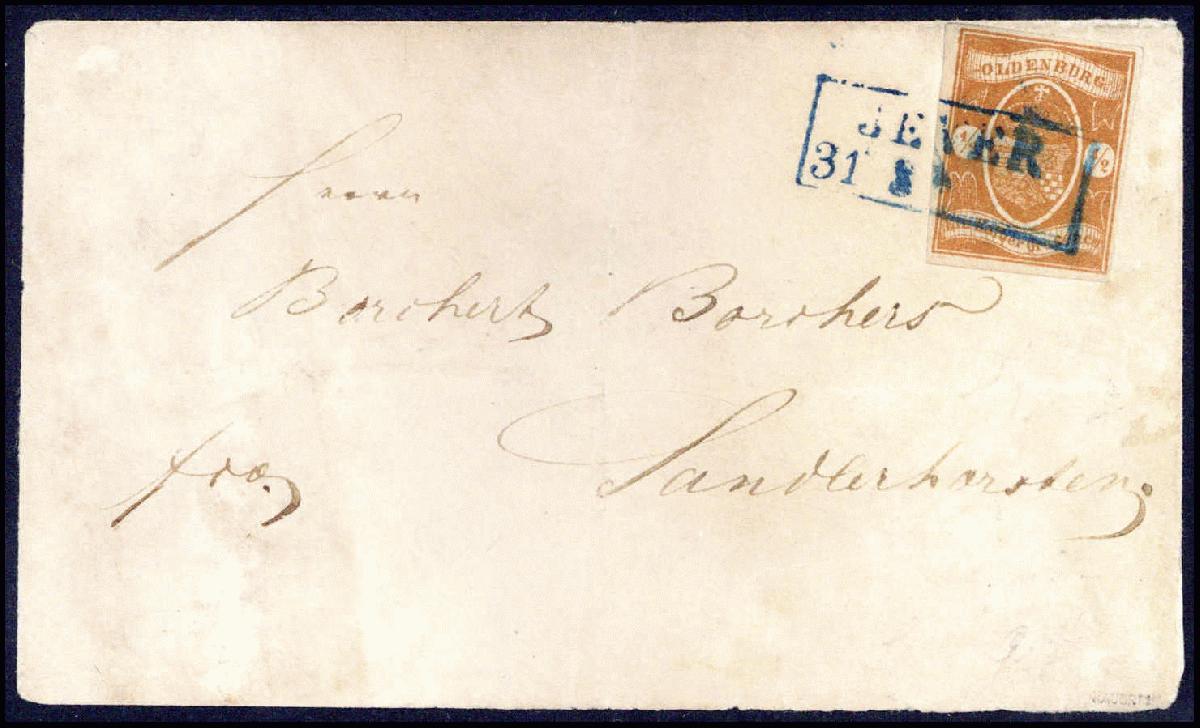 OLDENBURG
1/2
JEVER
31
Herrn
Borchert Borchers
frco.
Sanderhorsten.